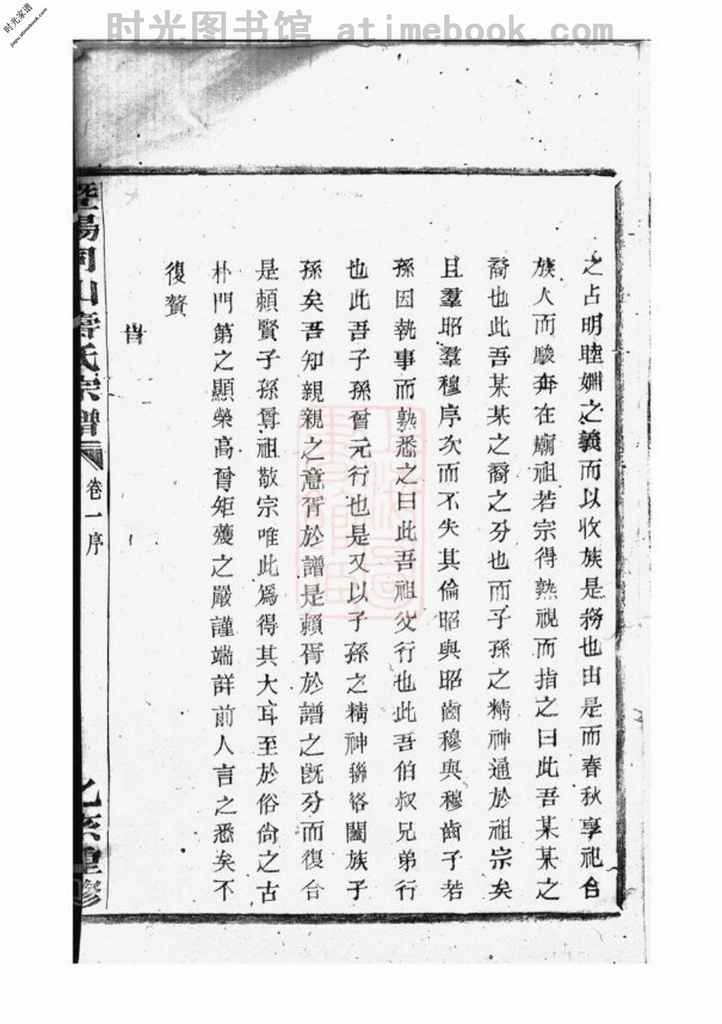 时光图书馆 atimebook.com
时光家谱
jiapu.atimebook.com
之占明睦婣之義而以收族是務也由是而春秋享祀合
族人而駿奔在廟祖若宗得熟視而指之曰此吾某某之
裔也此吾某某之裔之分也而子孫之精神通於祖宗矣
且羣昭羣穆序次而不失其倫昭與昭齒穆與穆齒子若
孫因執事而熟悉之曰此吾祖父行也此吾伯叔兄弟行
也此吾子孫曾元行也是又以子孫之精神聯絡闔族子
孫矣吾知親親之意胥於譜是賴胥於譜之既分而復合
是賴賢子孫尊祖敬宗唯此為得其大耳至於俗尚之古
朴門第之顯榮高曾矩矱之嚴謹端詳前人言之悉矣不
復贅
暨陽同山壽氏宗譜 卷一序 乙亥重修